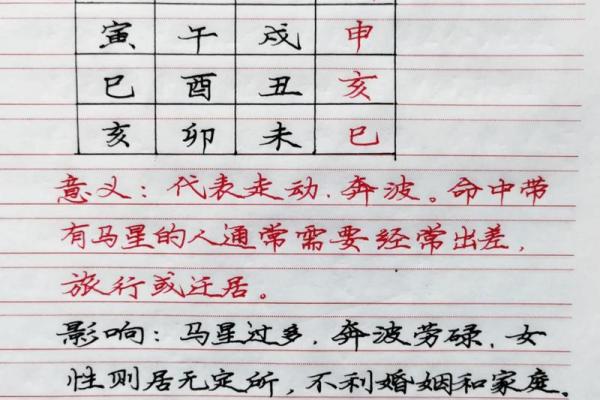 寅 午 戌 申
巳 酉 丑 亥
亥 卯 未 巳
意义：代表走动、奔波。命中带
有马星的人通常需要经常出差，
旅行或迁居。
影响：马星过多，奔波劳碌，女
性则居无定所，不利婚姻和家庭。